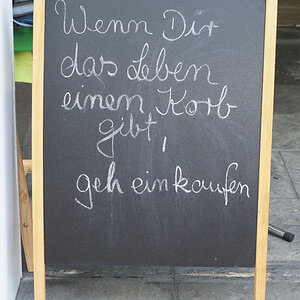 Wenn Dir
das Leben
einen Korb
gibt,
geh einkaufen